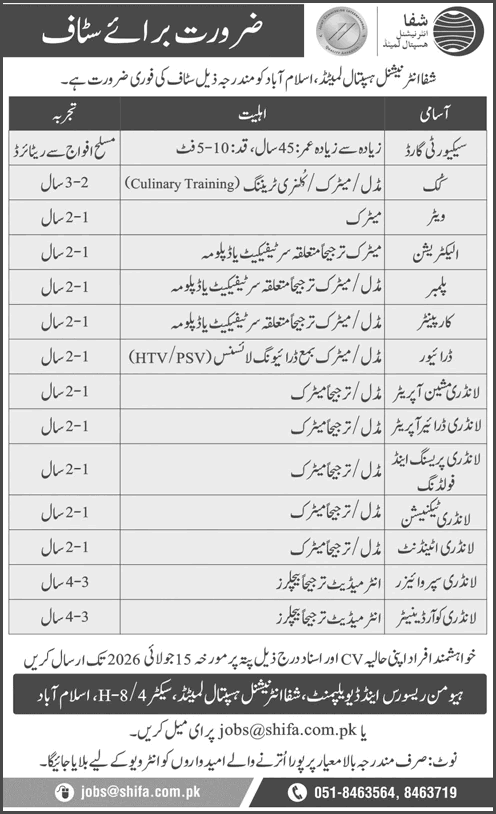 شفا
انٹرنیشنل
ہسپتال لمیٹڈ
ضرورت برائے سٹاف
شفا انٹرنیشنل ہسپتال لمیٹڈ، اسلام آباد کو مندرجہ ذیل سٹاف کی فوری ضرورت ہے۔
آسامی اہلیت تجربہ
سیکیورٹی گارڈ زیادہ سے زیادہ عمر: 45 سال، قد: 10-5 فٹ مسلح افواج سے ریٹائرڈ
کُک مڈل/میٹرک/کلنری ٹریننگ (Culinary Training) 2-3 سال
ویٹر میٹرک 1-2 سال
الیکٹریشن میٹرک ترجیحاً متعلقہ سرٹیفیکیٹ یا ڈپلومہ 1-2 سال
پلمبر مڈل/میٹرک ترجیحاً متعلقہ سرٹیفیکیٹ یا ڈپلومہ 1-2 سال
کارپینٹر مڈل/میٹرک ترجیحاً متعلقہ سرٹیفیکیٹ یا ڈپلومہ 1-2 سال
ڈرائیور مڈل/میٹرک بمع ڈرائیونگ لائسنس (HTV/PSV) 1-2 سال
لانڈری مشین آپریٹر مڈل/ترجیحاً میٹرک 1-2 سال
لانڈری ڈرائیر آپریٹر مڈل/ترجیحاً میٹرک 1-2 سال
لانڈری پریسنگ اینڈ فولڈنگ مڈل/ترجیحاً میٹرک 1-2 سال
لانڈری ٹیکنیشن مڈل/ترجیحاً میٹرک 1-2 سال
لانڈری اٹینڈنٹ مڈل/ترجیحاً میٹرک 1-2 سال
لانڈری سپروائیزر انٹرمیڈیٹ ترجیحاً بیچلرز 3-4 سال
لانڈری کوآرڈینیٹر انٹرمیڈیٹ ترجیحاً بیچلرز 3-4 سال
خواہشمند افراد اپنی حالیہ CV اور اسناد درج ذیل پتہ پر مورخہ 15 جولائی 2026 تک ارسال کریں
ہیومن ریسورس اینڈ ڈیویلپمنٹ، شفا انٹرنیشنل ہسپتال لمیٹڈ، سیکٹر H-8/4، اسلام آباد
یا jobs@shifa.com.pk پر ای میل کریں۔
نوٹ: صرف مندرجہ بالا معیار پر پورا اُترنے والے امیدواروں کو انٹرویو کے لیے بلایا جائیگا۔
051-8463564, 8463719
jobs@shifa.com.pk